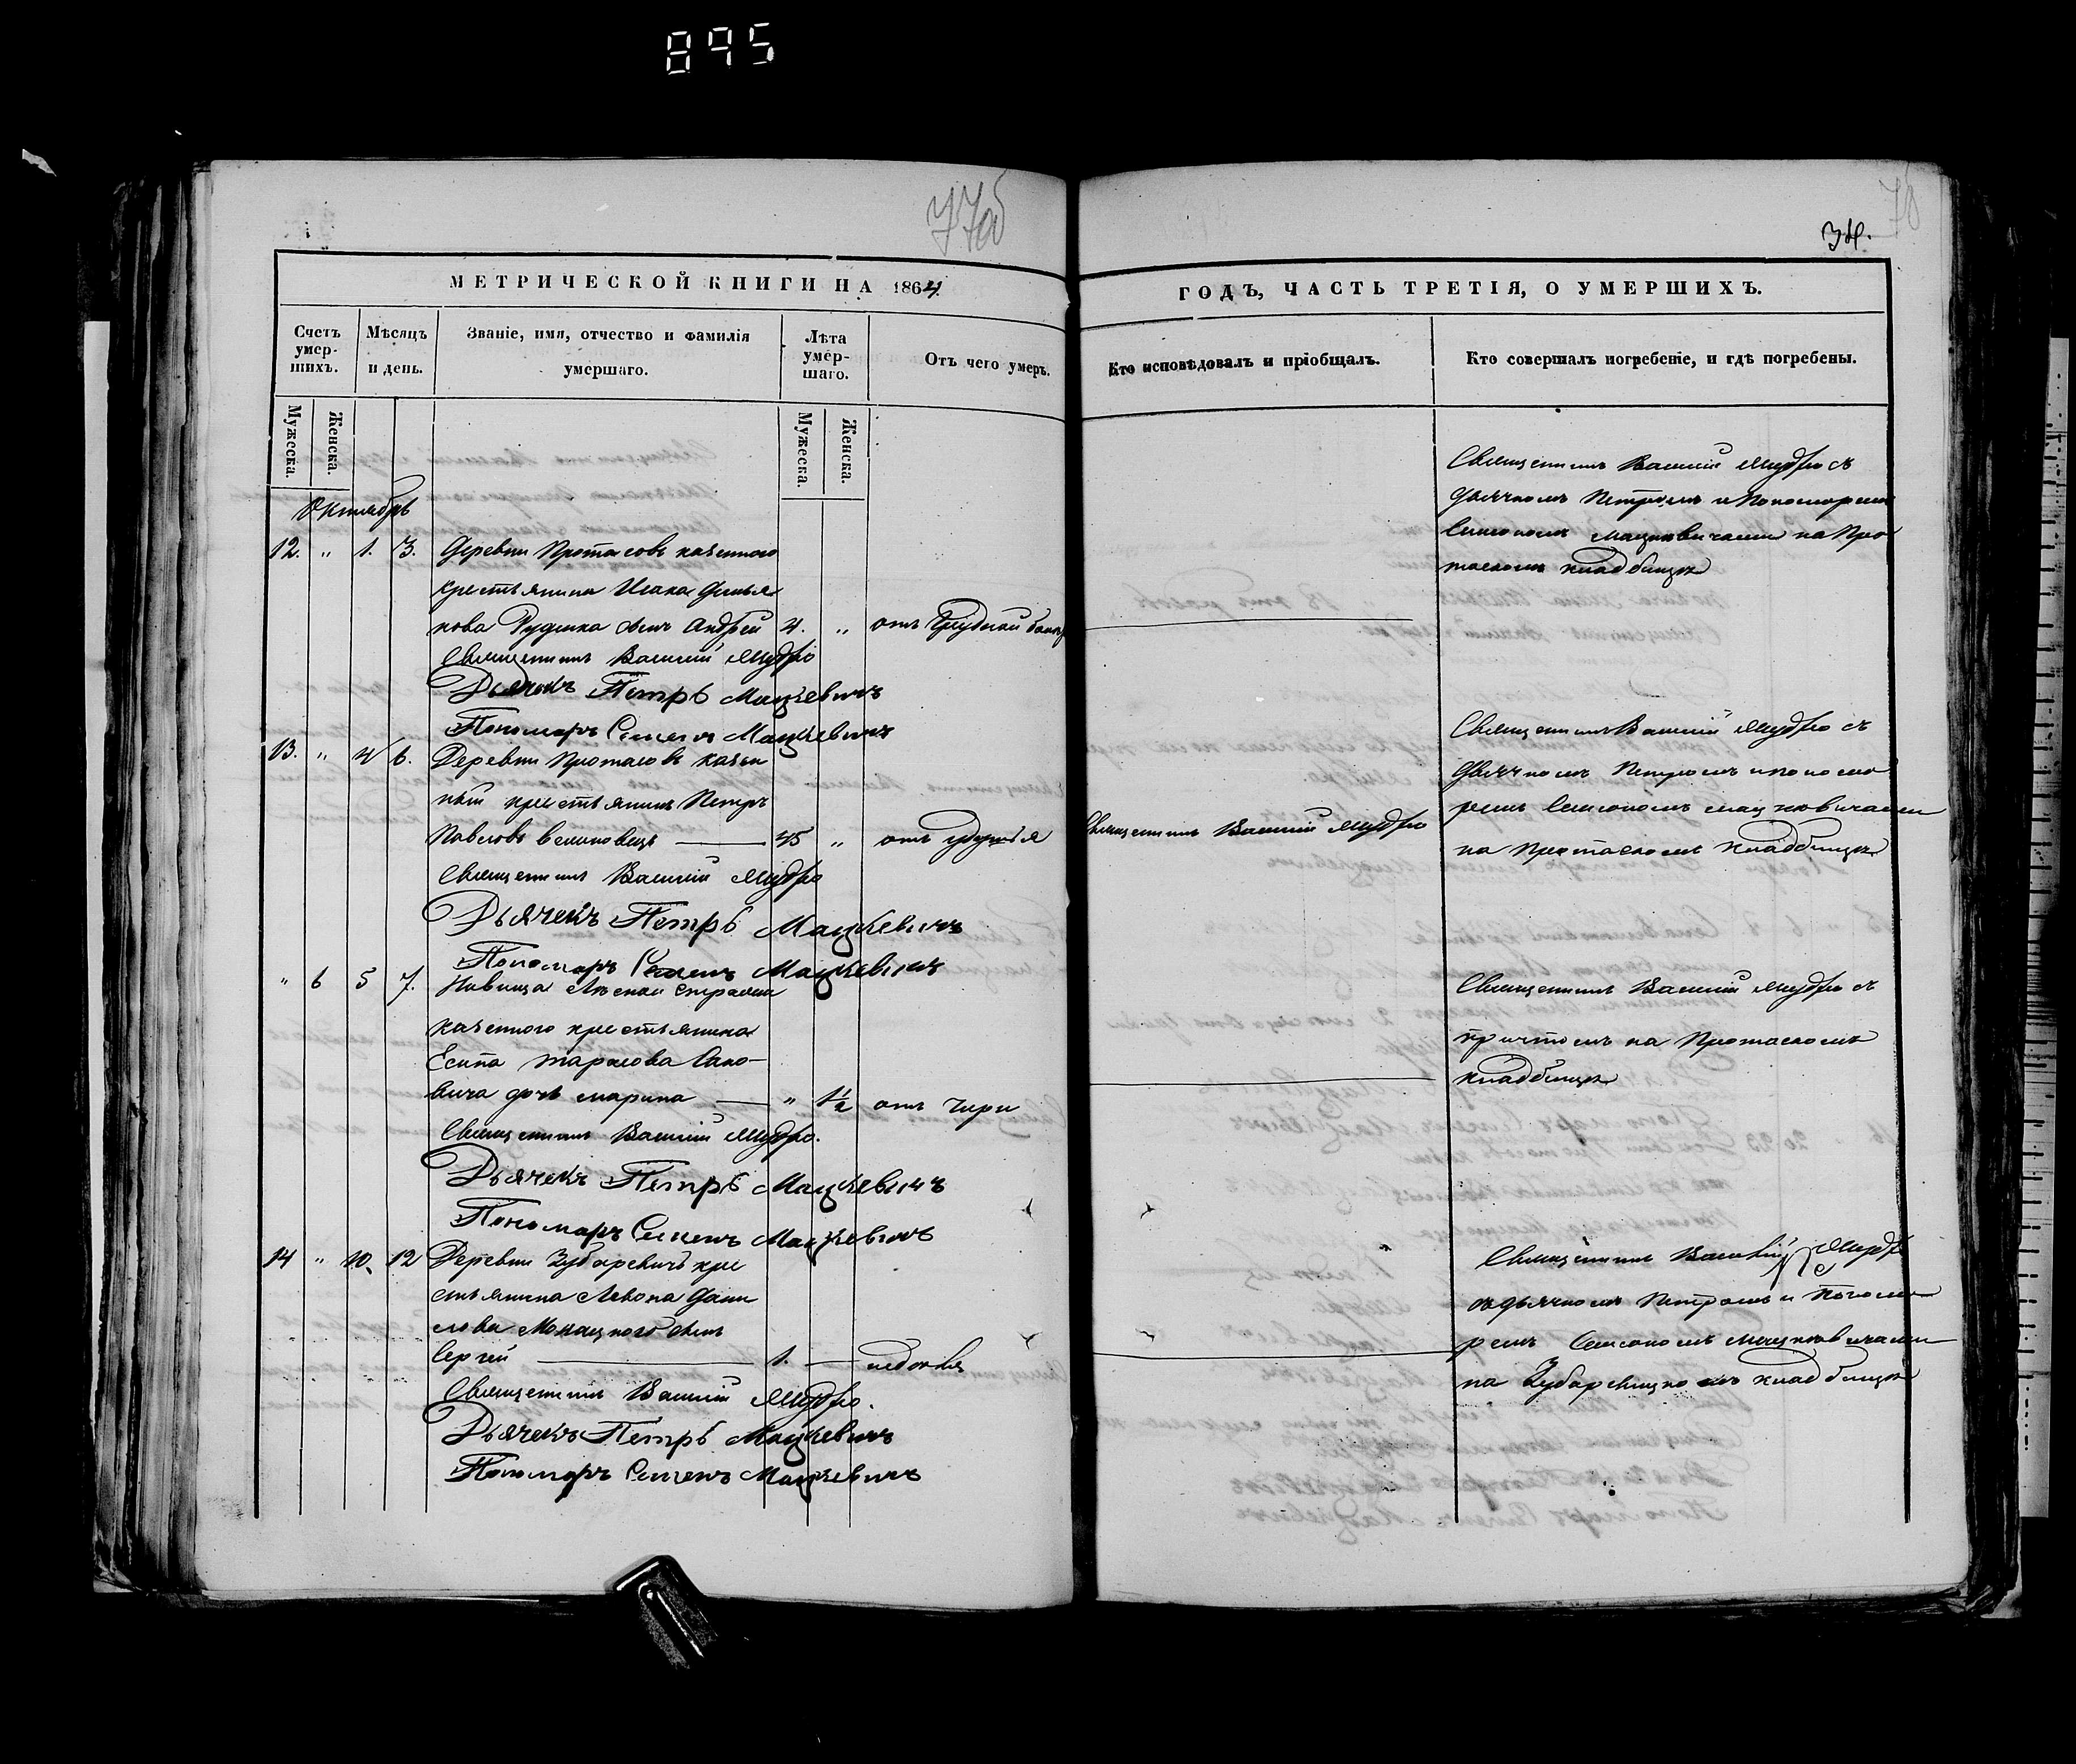 895
77об
78
34.
МЕТРИЧЕСКОЙ КНИГИ НА 1864
ГОДЪ, ЧАСТЬ ТРЕТІЯ, О УМЕРШИХЪ.
Счетъ умер-шихъ.
Мѣсяцъ и день.
Званіе, имя, отчество и фамилія умершаго.
Лѣта умер-шаго.
Отъ чего умеръ.
Кто исповѣдовалъ и пріобщалъ.
Кто совершалъ погребеніе, и гдѣ погребены.
Мужеска.
Женска.
Мужеска.
Женска.
Октябрь
12. " 1. 3. Деревни Протасовъ казенного
крестьянина Исака Демья
нова сынъ Андрей 4. " отъ
Священникъ Василій Мудро
Дьячекъ Петръ Мацкевичъ
Пономарь Семенъ Мацкевичъ
Священникъ Василій Мудро съ
дьячкомъ Петромъ и Пономаремъ
Симономъ Мацкевичами на Про
таскомъ кладбищѣ
13. " 4 6. Деревни Протасовъ казен
ный крестьянинъ Петръ
Павловъ 45 " отъ
Священникъ Василій Мудро
Дьячекъ Петръ Мацкевичъ
Пономарь Семенъ Мацкевичъ
Священникъ Василій Мудро
Священникъ Василій Мудро съ
дьячкомъ Петромъ и понома
ремъ Симономъ Мацкевичами
на Протаскомъ кладбищѣ
" 6 5 7. Лѣсной стражи
казенного крестьянина
Есипа Тарасова Сако-
вича дочь Марина " 1½ отъ
Священникъ Василій Мудро.
Дьячекъ Петръ Мацкевичъ
Пономарь Семенъ Мацкевичъ
Священникъ Василій Мудро съ
причтомъ на Протаскомъ
кладбищѣ
14 " 10. 12 Деревни Зубаревичъ кре
стьянина Левона Дани
лова сынъ
Сергей 1.
Священникъ Василій Мудро.
Дьячекъ Петръ Мацкевичъ
Пономарь Семенъ Мацкевичъ
Священникъ Василій Мудро
съ дьячкомъ Петромъ и Понома
ремъ Симономъ Мацкевичами
на Зубаревицкомъ кладбищѣ